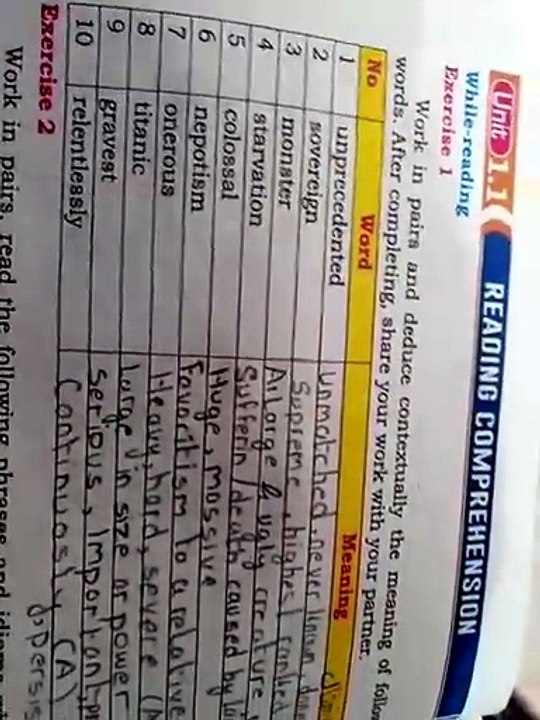 Unit 1.1 READING COMPREHENSION
While-reading
Exercise 1
Work in pairs and deduce contextually the meaning of
words. After completing, share your work with your partner.
No Word Meaning
1 unprecedented Unmatched, never known,
2 sovereign Supreme, highest ranked
3 monster A Large & ugly creature
4 starvation Sufferin/death caused by
5 colossal Huge, massive
6 nepotism Favoritism to a relative
7 onerous Heavy, hard, severe
8 titanic Large in size or power
9 gravest Serious, Important
10 relentlessly Continuously (A)
Exercise 2
Work in pairs, read the following phrases and idioms